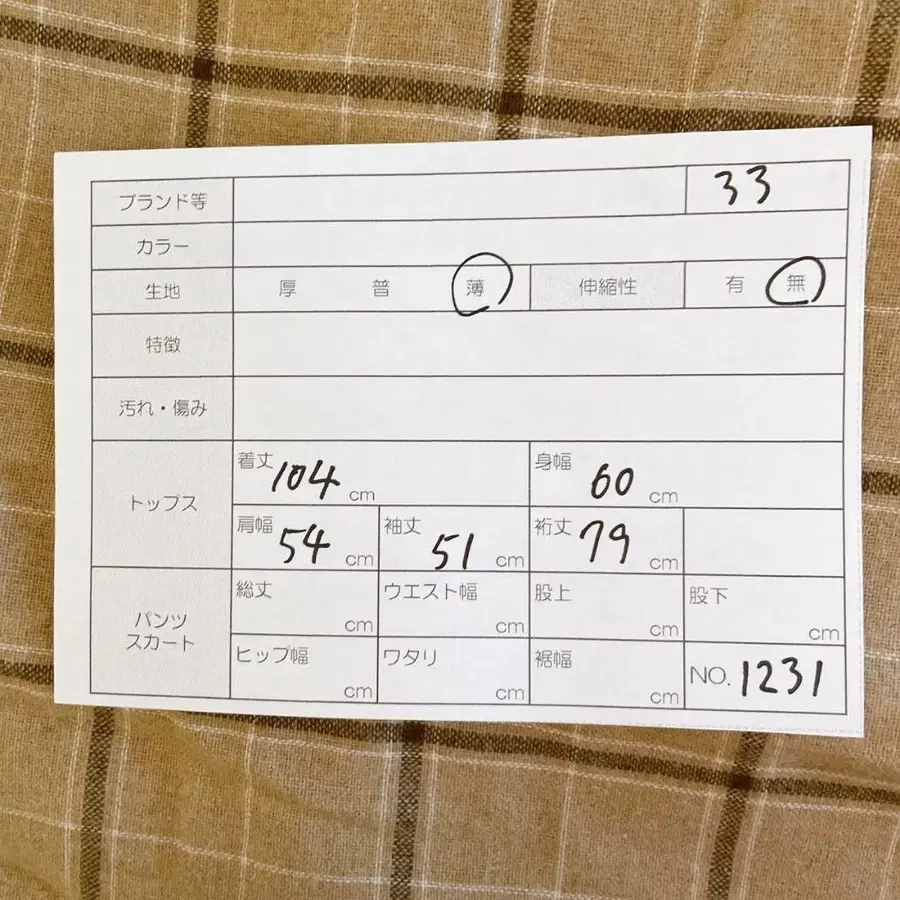 ブランド等 33
カラー
生地 厚 普 薄 伸縮性 有 無
特徴
汚れ・傷み
トップス
着丈 104 cm 身幅 60 cm
肩幅 54 cm 袖丈 51 cm 裄丈 79 cm
パンツ
スカート
総丈 cm ウエスト幅 cm 股上 cm 股下 cm
ヒップ幅 cm ワタリ cm 裾幅 cm NO. 1231